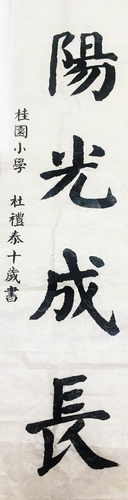 陽光成長
桂園小學 杜禮泰十歲書